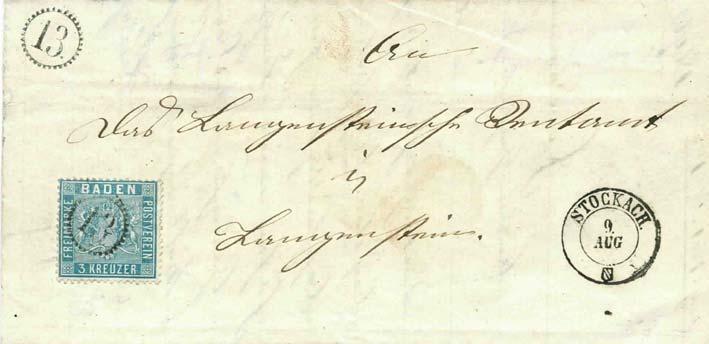 13
An
Das Langensteinsche Rentamt
in
Langenstein.
BADEN
FREIMARKE
POSTVEREIN
3 KREUZER
STOCKACH.
9.
AUG